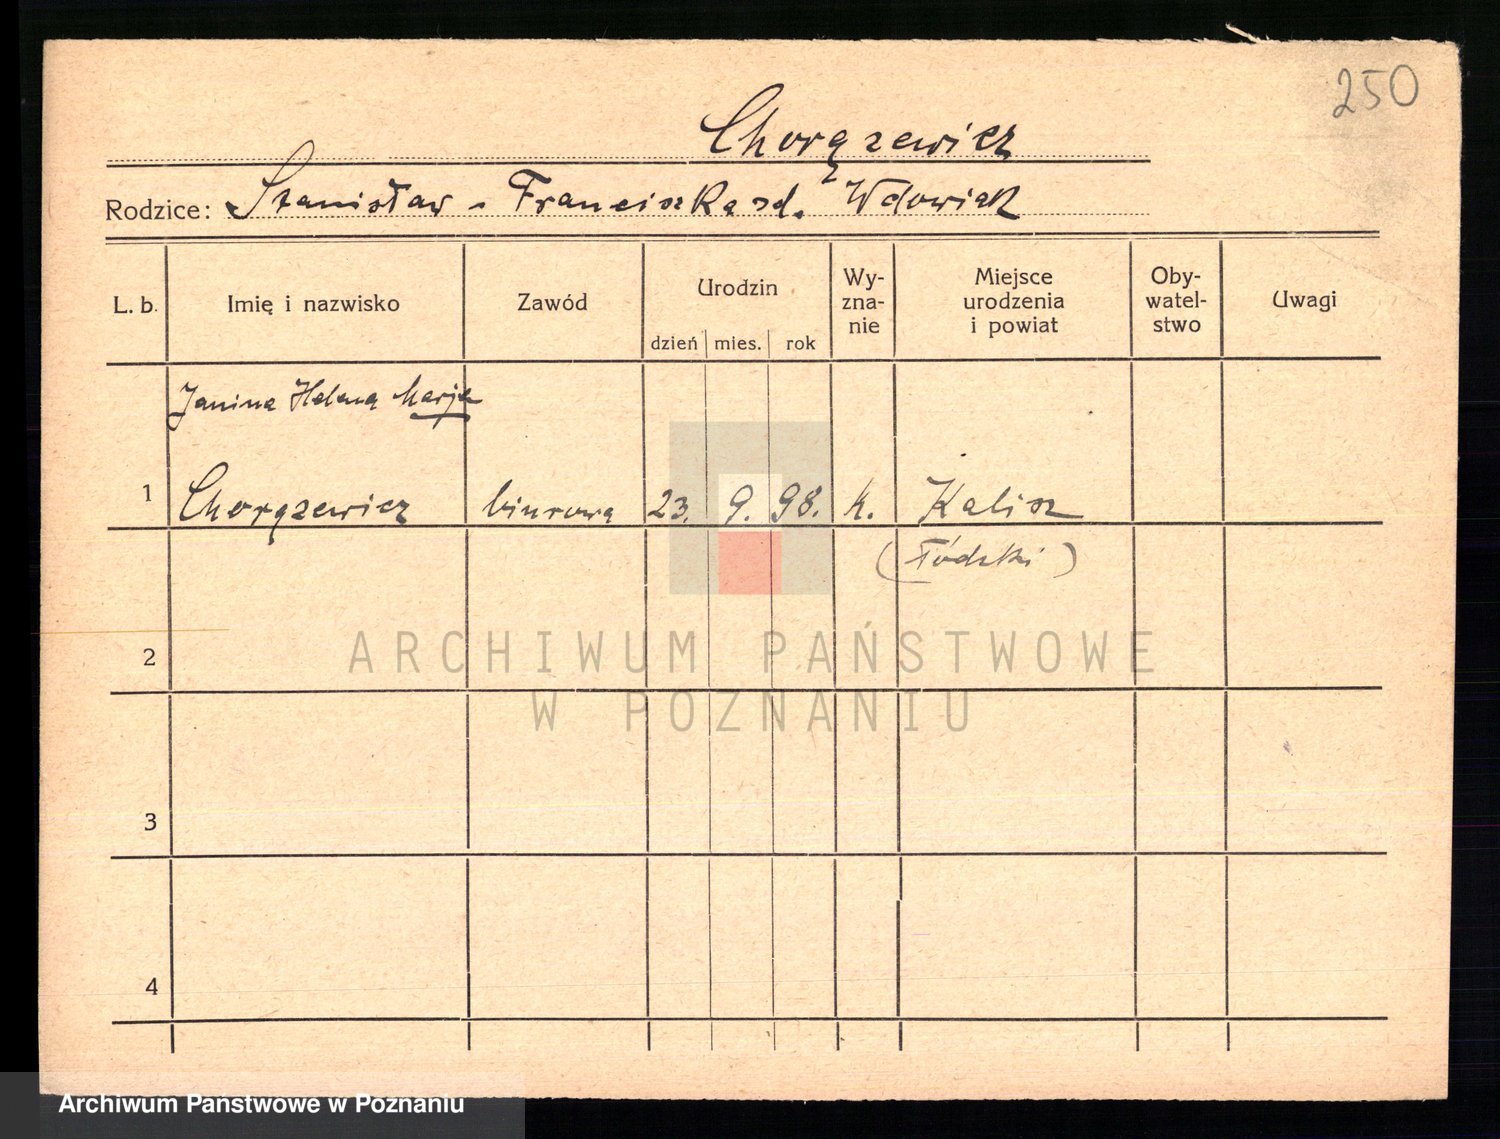 250
Chorązewicz
Rodzice: Stanisław - Franciszka zd. Wdowiak
L. b. Imię i nazwisko Zawód Urodzin dzień mies. rok Wy- zna- nie Miejsce urodzenia i powiat Oby- watel- stwo Uwagi
Janina Helena Marja
1 Chorązewicz biurowa 23. 9. 98. k. Kalisz
(Łódzki)
2
3
4
ARCHIWUM PAŃSTWOWE
W POZNANIU
Archiwum Państwowe w Poznaniu